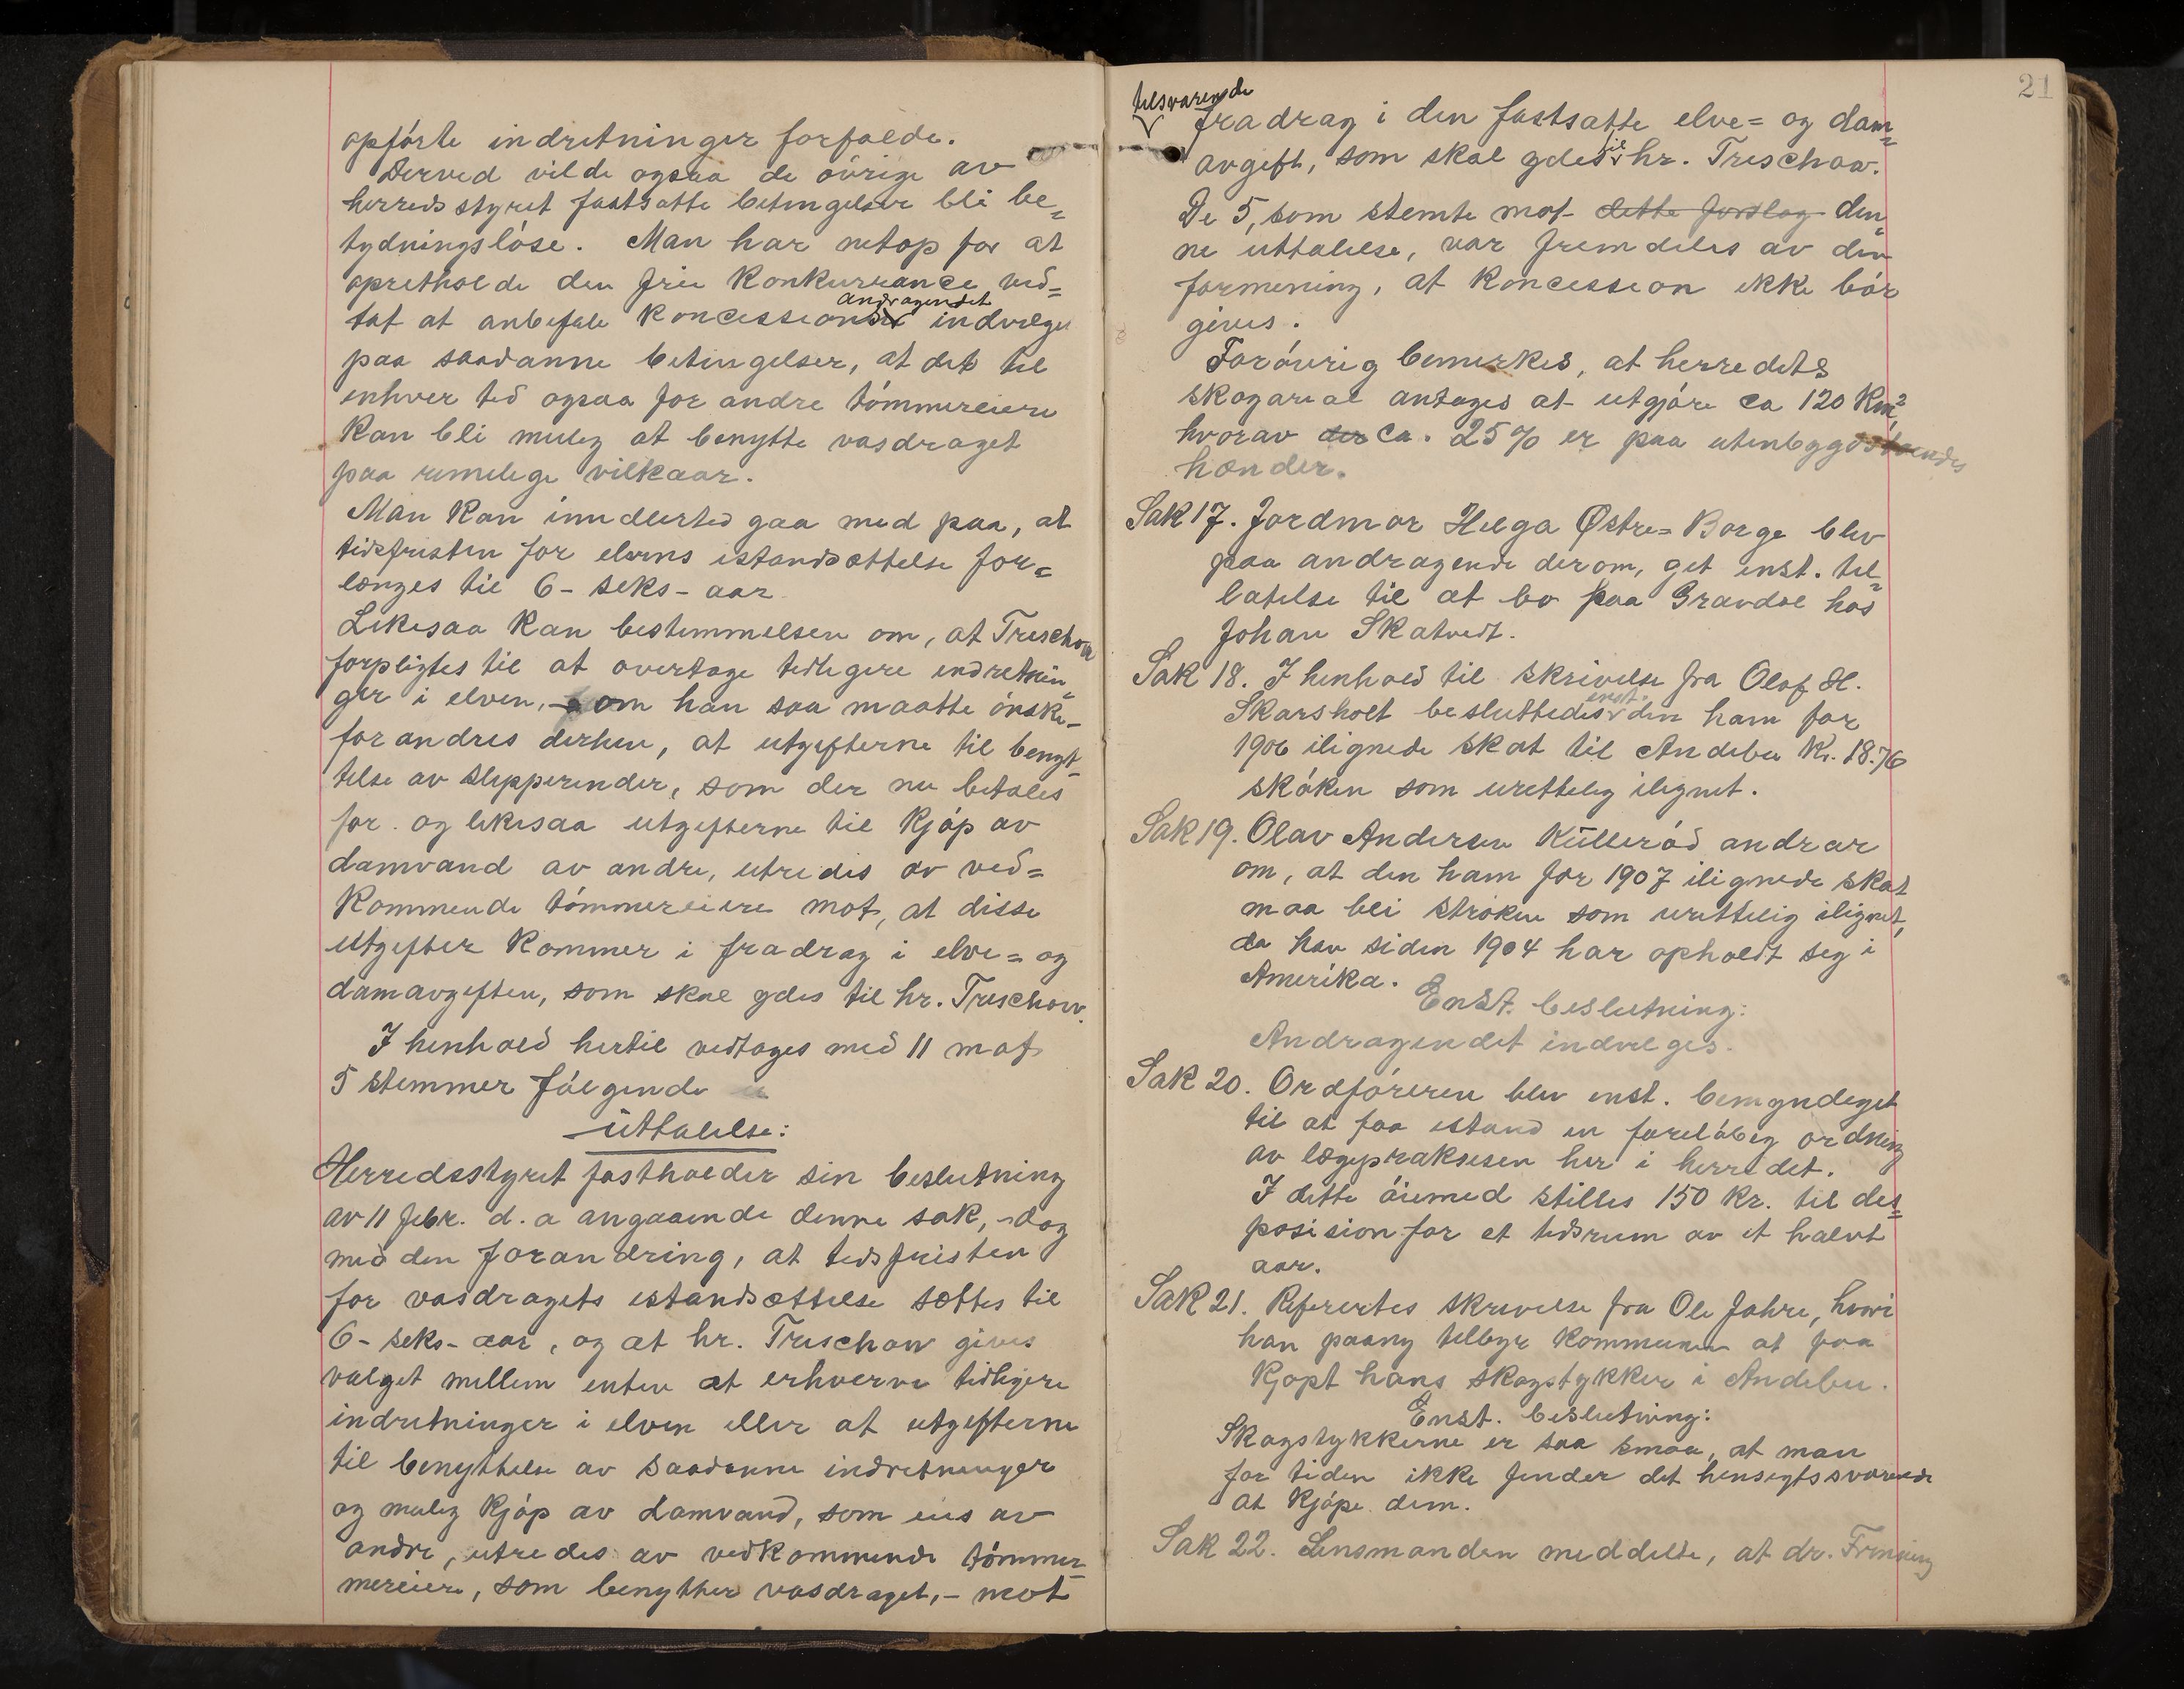 opførte indretninger forfalde.
Derved vilde ogsaa de øvrige av
herredsstyret fastsatte betingelser bli be=
tydningsløse. Man har netop for at
opretholde den frie Konkurrance ved=
andragendet
tat at anbefale Koncessions indvilget
paa saadanne betingelser, at det til
enhver tid ogsaa for andre tømmereiere
Kan bli mulig at benytte vasdraget
paa rimelige vilkaar.
Man Kan imidlertid gaa med paa, at
tidsfristen for elvens istandsættelse for=
længes til 6 - seks - aar.
Likesaa Kan bestemmelsen om, at Treschow
forpligtes til at overtage tidligere indretnin=
ger i elven, - om han saa maatte ønske -
forandres derhen, at utgifterne til benyt=
telse av slipperender, som der nu betales
for og likesaa utgifterne til Kjøp av
damvand av andre, utredes av ved=
Kommende tømmereiere mot, at disse
utgifter Kommer i fradrag i elve= og
damavgiften, som skal ydes til hr. Treschow.
I henhold hertil vedtages med 11 mot
5 stemmer følgende
uttalelse:
Herredsstyret fastholder sin beslutning
av 11 febr. d. a angaaende denne sak, - dog
med den forandring, at tidsfristen
for vasdragets istandsættelse sættes til
6 - seks - aar, og at hr. Treschow gives
valget mellem enten at erhverve tidligere
indretninger i elven eller at utgifterne
til benyttelse av saadanne indretninger
og mulig Kjøp av damvand, som eies av
andre, utredes av vedkommende tømmer=
mereiere, som benytter vasdraget, - mot
21
tilsvarende
fradrag i den fastsatte elve= og dam=
avgift, som skal ydes til hr. Treschow.
De 5, som stemte mot dette forslag den=
ne uttalelse, var fremdeles av den
formening, at Koncession ikke bør
gives.
Forøvrig bemerkes, at herredets
skogareal antages at utgjøre ca 120 Km²,
hvorav der ca. 25% er paa utenbygdsboendes
hænder.
Sak 17. Jordmor Helga Østre=Borge blev
paa andragende derom, get enst. til=
latelse til at bo paa Gravdal hos
Johan Skatvedt.
Sak 18. I henhold til skrivelse fra Olof H.
enst.
Skarsholt besluttedes den ham for
1906 ilignede skat til Andebu Kr. 18.76
strøken som urettelig ilignet.
Sak 19. Olav Andersen Küllerød andrar
om, at den ham for 1907 ilignede skat
maa bli strøken som urettelig ilignet,
da han siden 1904 har opholdt seg i
Amerika.
Enst. beslutning:
Andragendet indvilges.
Sak 20. Ordføreren blev enst. bemyndiget
til at faa istand en foreløbig ordning
av lægepraksisen her i herredet.
I dette øiemed stilles 150 Kr. til dis=
posision for et tidsrum av et halvt
aar.
Sak 21. Refertes skrivelse fra Ole Jahre, hvori
han paany tilbyr Kommunen at faa
Kjøpt hans skogstykker i Andebu.
Enst. beslutning:
Skogstykkerne er saa smaa, at man
for tiden ikke finder det hensigtssvarende
at Kjøpe dem.
Sak 22. Lensmanden meddelte, at dr.